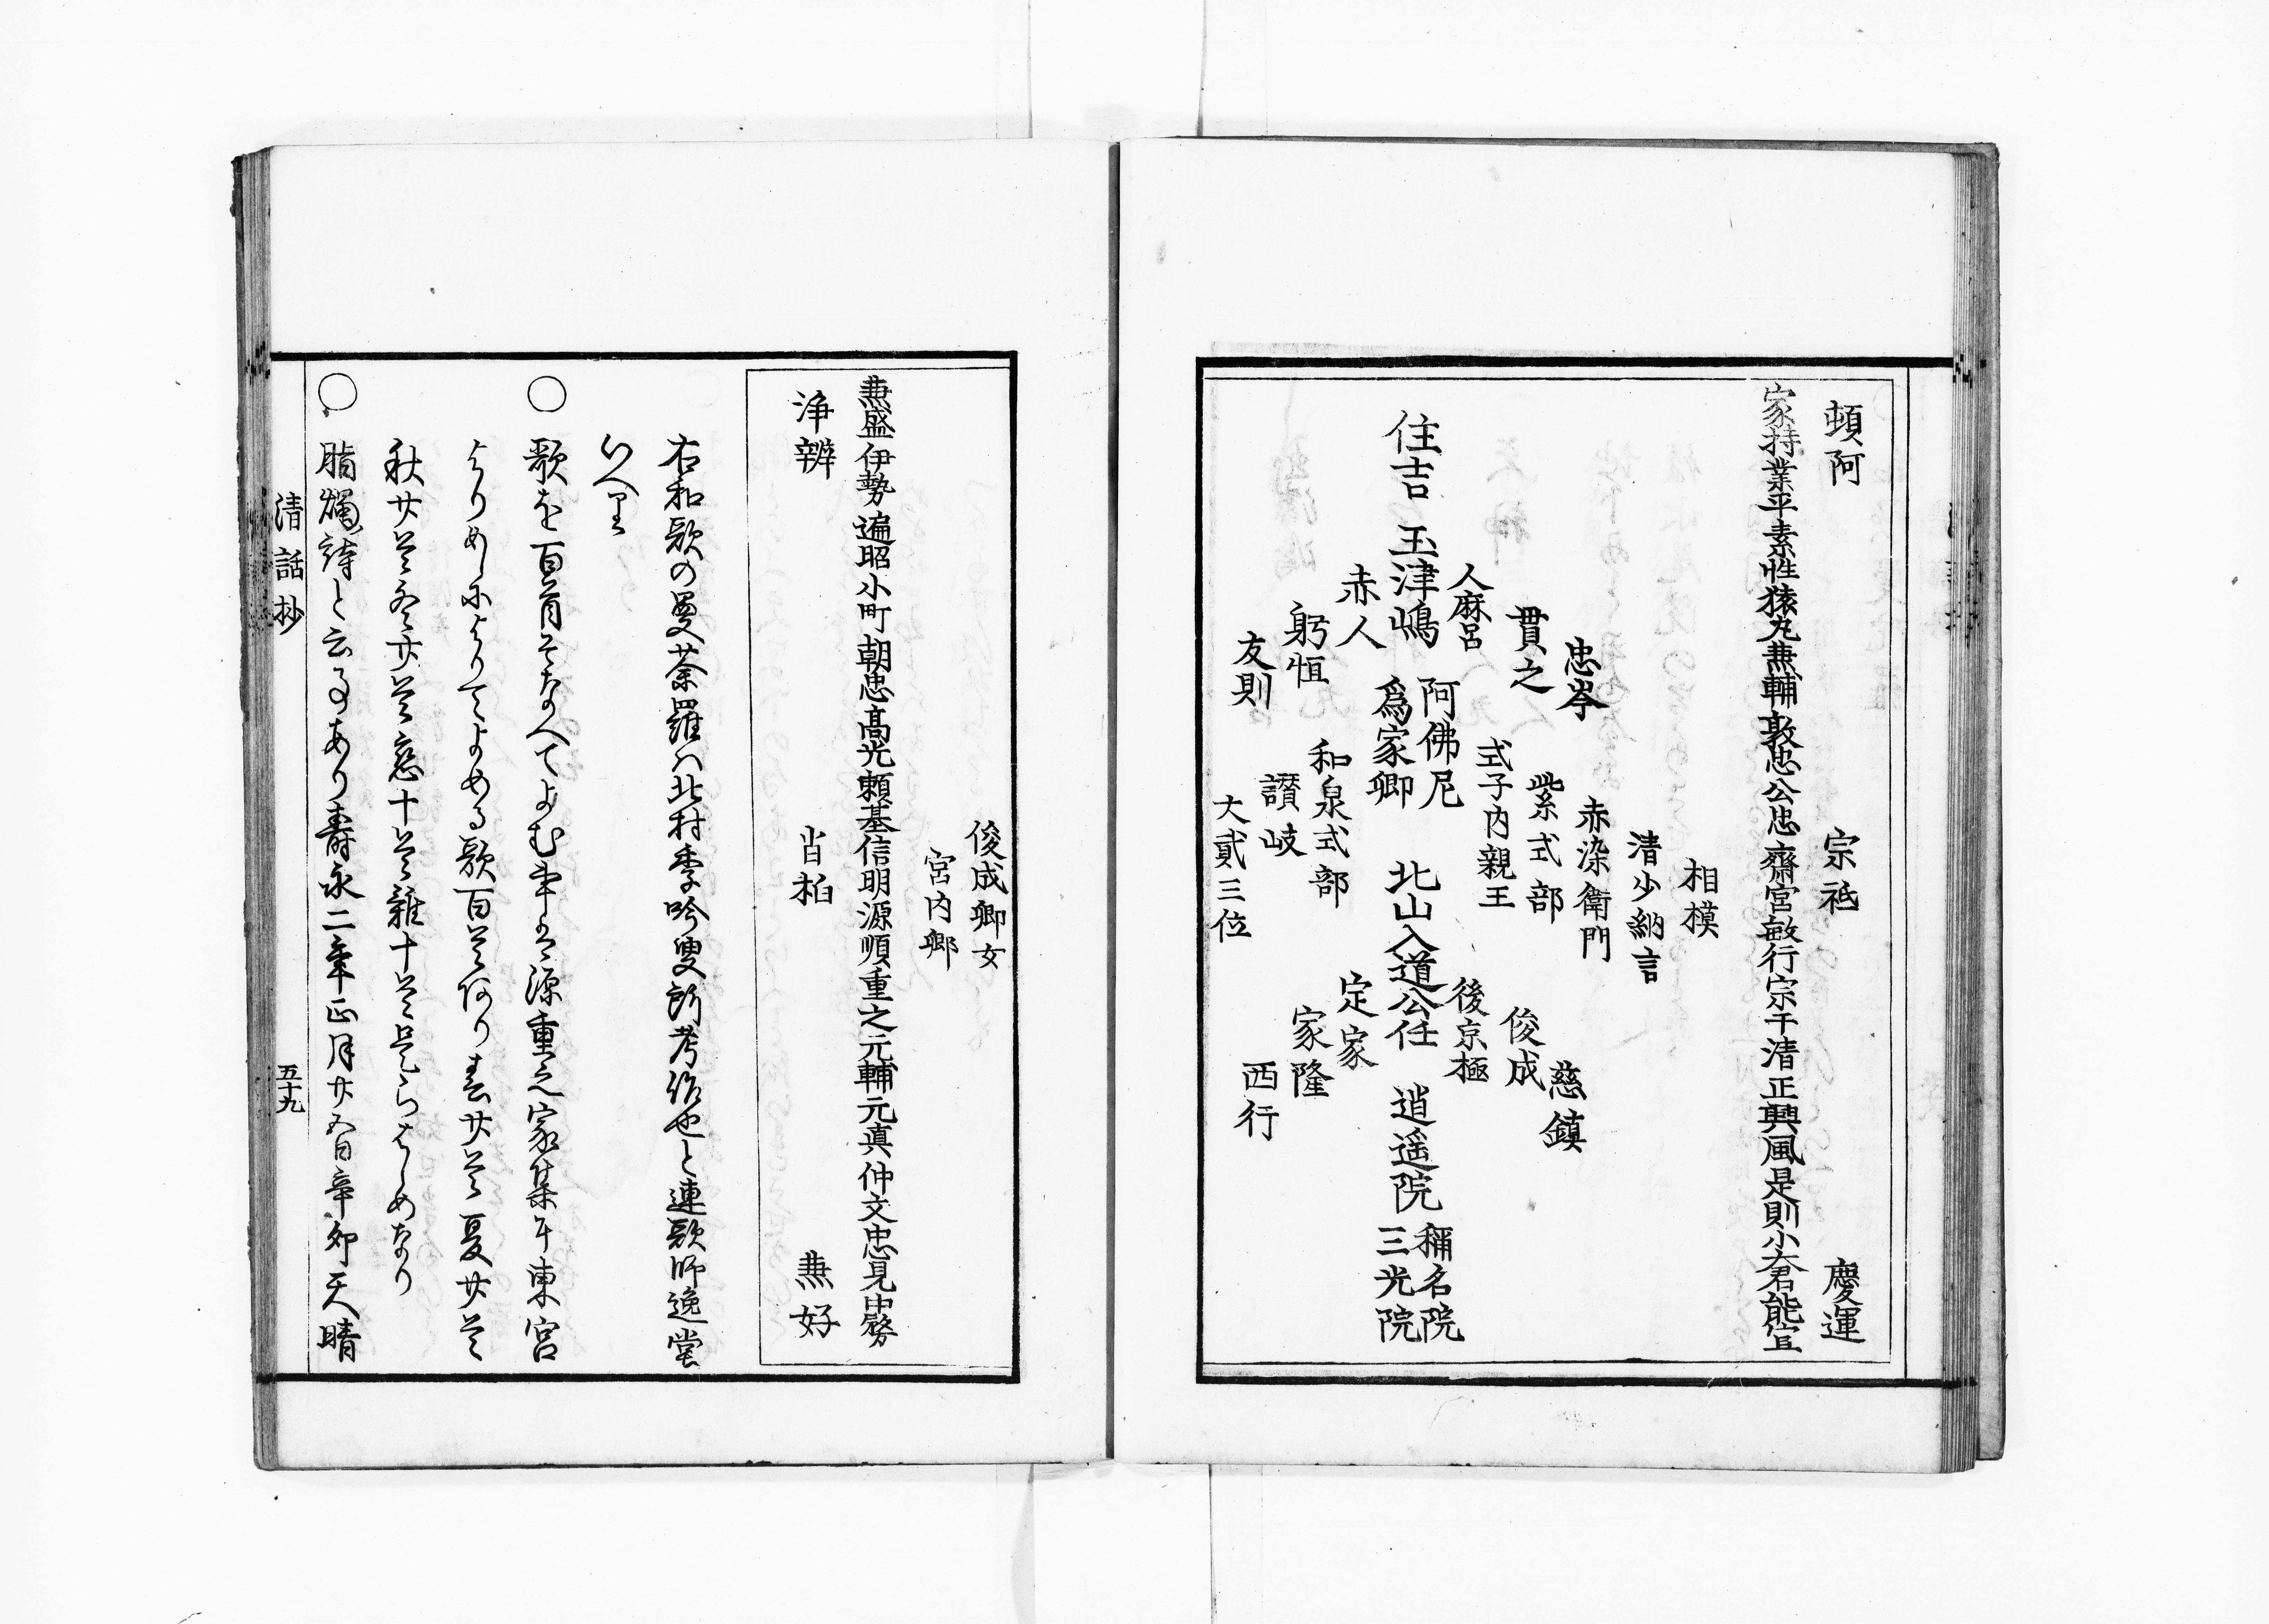 頓阿　宗祇　慶運
家持業平素性猿丸兼輔敦忠公忠齋宮敏行宗于清正興風是則小大君能宣
相模
清少納言
忠岑　赤染衛門　慈鎮
貫之　紫式部　俊成
人麻呂　式子内親王　後京極
住吉　玉津嶋　阿佛尼　爲家卿　北山入道公任　逍遥院　稱名院　三光院
赤人　和泉式部　定家
躬恒　讃岐　家隆
友則　大貳三位　西行
俊成卿女
宮内卿
兼盛伊勢遍昭小町朝忠高光頼基信明源順重之元輔元真仲文忠見中務
浄辨　肖柏　兼好
右和歌の曼荼羅ハ北村季吟叟所考作也と連歌師逸堂
いへり
○歌を百首そなへてよむ事は源重之家集に東宮
よりめしによりてよめる歌百首あり春廿首夏廿首
秋廿首冬廿首恋十首雑十首是らはしめなり
○脂燭詩と云事あり壽永二年正月廿五日辛卯天晴
清話抄　五十九